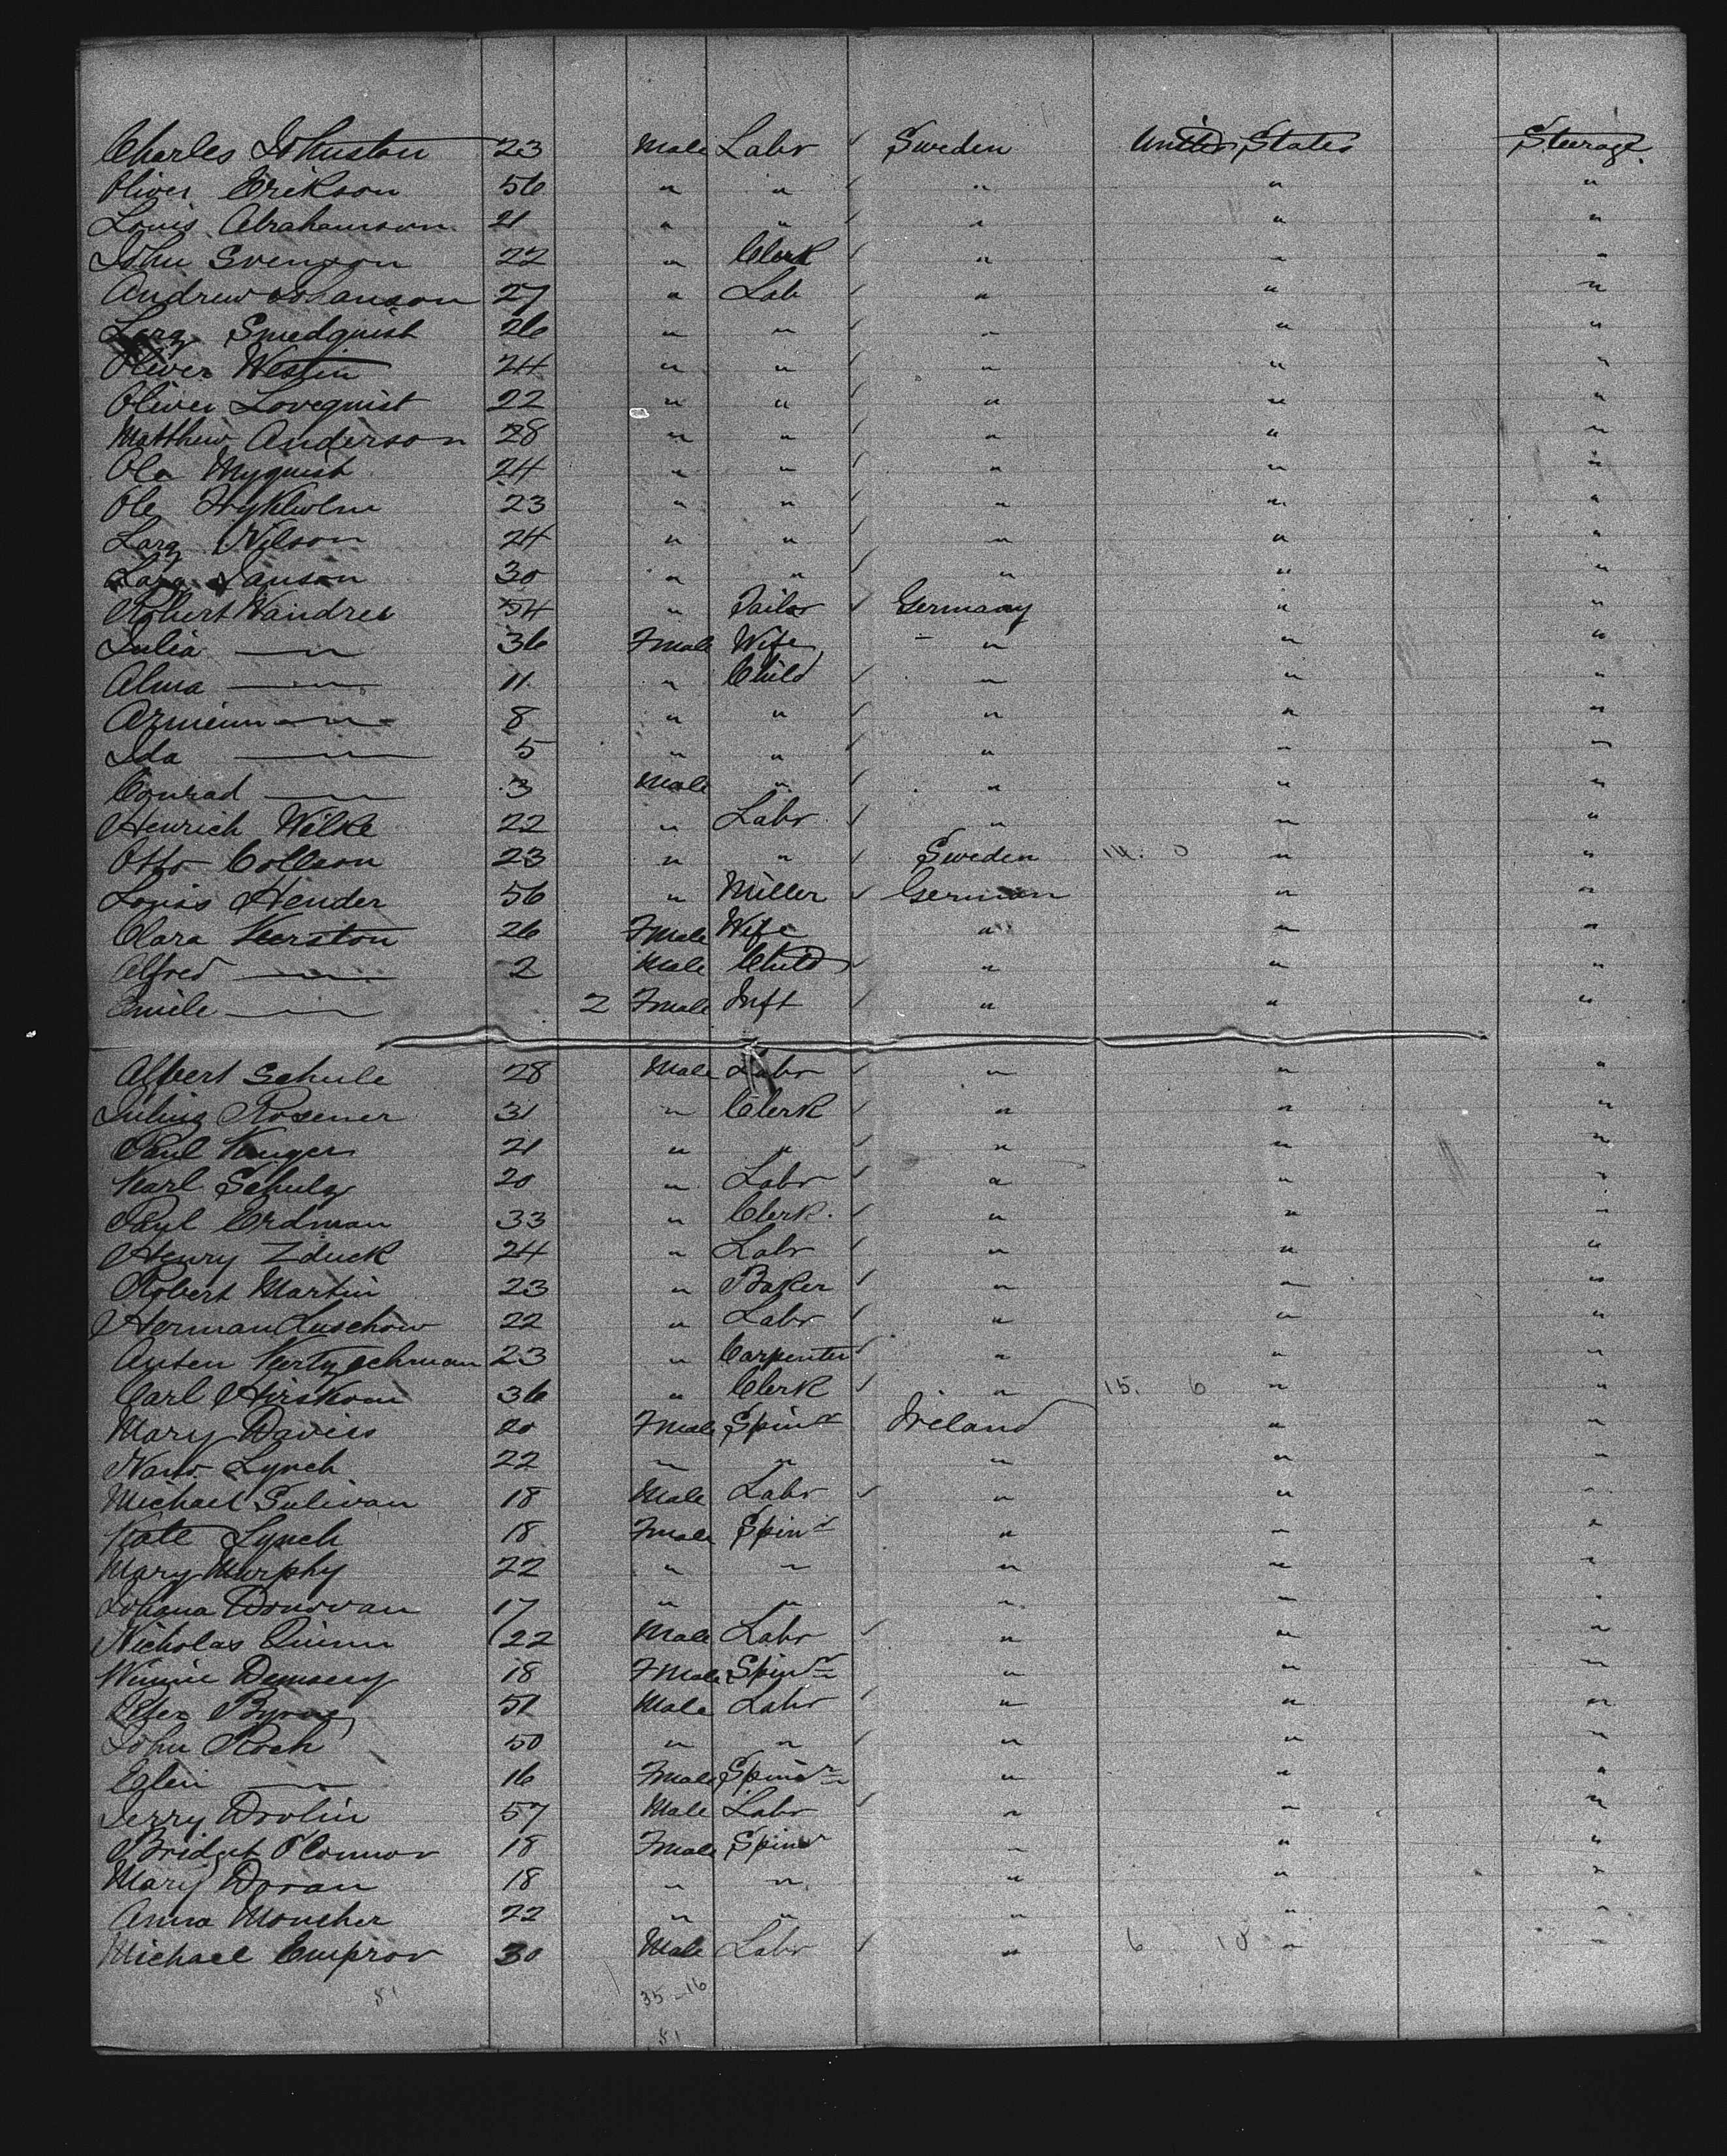 Charles Johnston 23 Male Labr Sweden United States Steerage
Oliver Erikson 56 " " " " "
Louis Abrahamson 21 " " " " "
John Svenson 22 " Clerk " " "
Andrew Johanson 27 " Lab " " "
Smedquist 26 " " " " "
Oliver Westin 24 " " " " "
Oliver Lovequist 22 " " " " "
Matthew Anderson 28 " " " " "
Ola Myquist 24 " " " " "
Ole 23 " " " " "
Lars Nilson 24 " " " " "
Lars Janson 30 " " " " "
Robert Wandrei 54 " Tailor Germany " "
Julia " 36 Fmale Wife " " "
Alma " 11 " Child " " "
" 8 " " " " "
Ida " 5 " " " " "
Conrad " 3 Male " " " "
Henrich Wilke 22 " Labr " " "
Otto Collson 23 " " Sweden 14. 0 " "
Louis Hender 56 " Miller German " "
Clara Kerston 26 Fmale Wife " " "
Alfred " 2 Male Child " " "
Emile " 2 Fmale Inft " " "
Albert Schule 28 Male Labr " " "
Julius Rosener 31 " Clerk " " "
Paul Kruger 21 " " " " "
Karl Schulz 20 " Labr " " "
Paul Erdman 33 " Clerk. " " "
Henry Zduck 24 " Labr " " "
Robert Martin 23 " Baker " " "
Herman Luschow 22 " Labr " " "
23 " Carpenter " " "
Carl Hirskorn 36 " Clerk " 15. 6 " "
Mary Daviss 20 Fmale Spinr Ireland " "
Lynch 22 " " " " "
Michael Sulivan 18 Male Labr " " "
Kate Lynch 18 Fmale Spinr " " "
Mary Murphy 22 " " " " "
Johana Donovan 17 " " " " "
Nicholas Quinn 22 Male Labr " " "
Winnie Demssey 18 Fmale Spinr " " "
Peter Byrne 51 Male Labr " " "
John Roch 50 " " " " "
Eglin " 16 Fmale Spinr " " "
Jerry Drolin 57 Male Labr " " "
Bridget O'Connor 18 Fmale Spinr " " "
Mary Doran 18 " " " " "
Anna Moucher 22 " " " " "
Michael Emprov 30 Male Labr " 6 10 " "
51 35-16
51